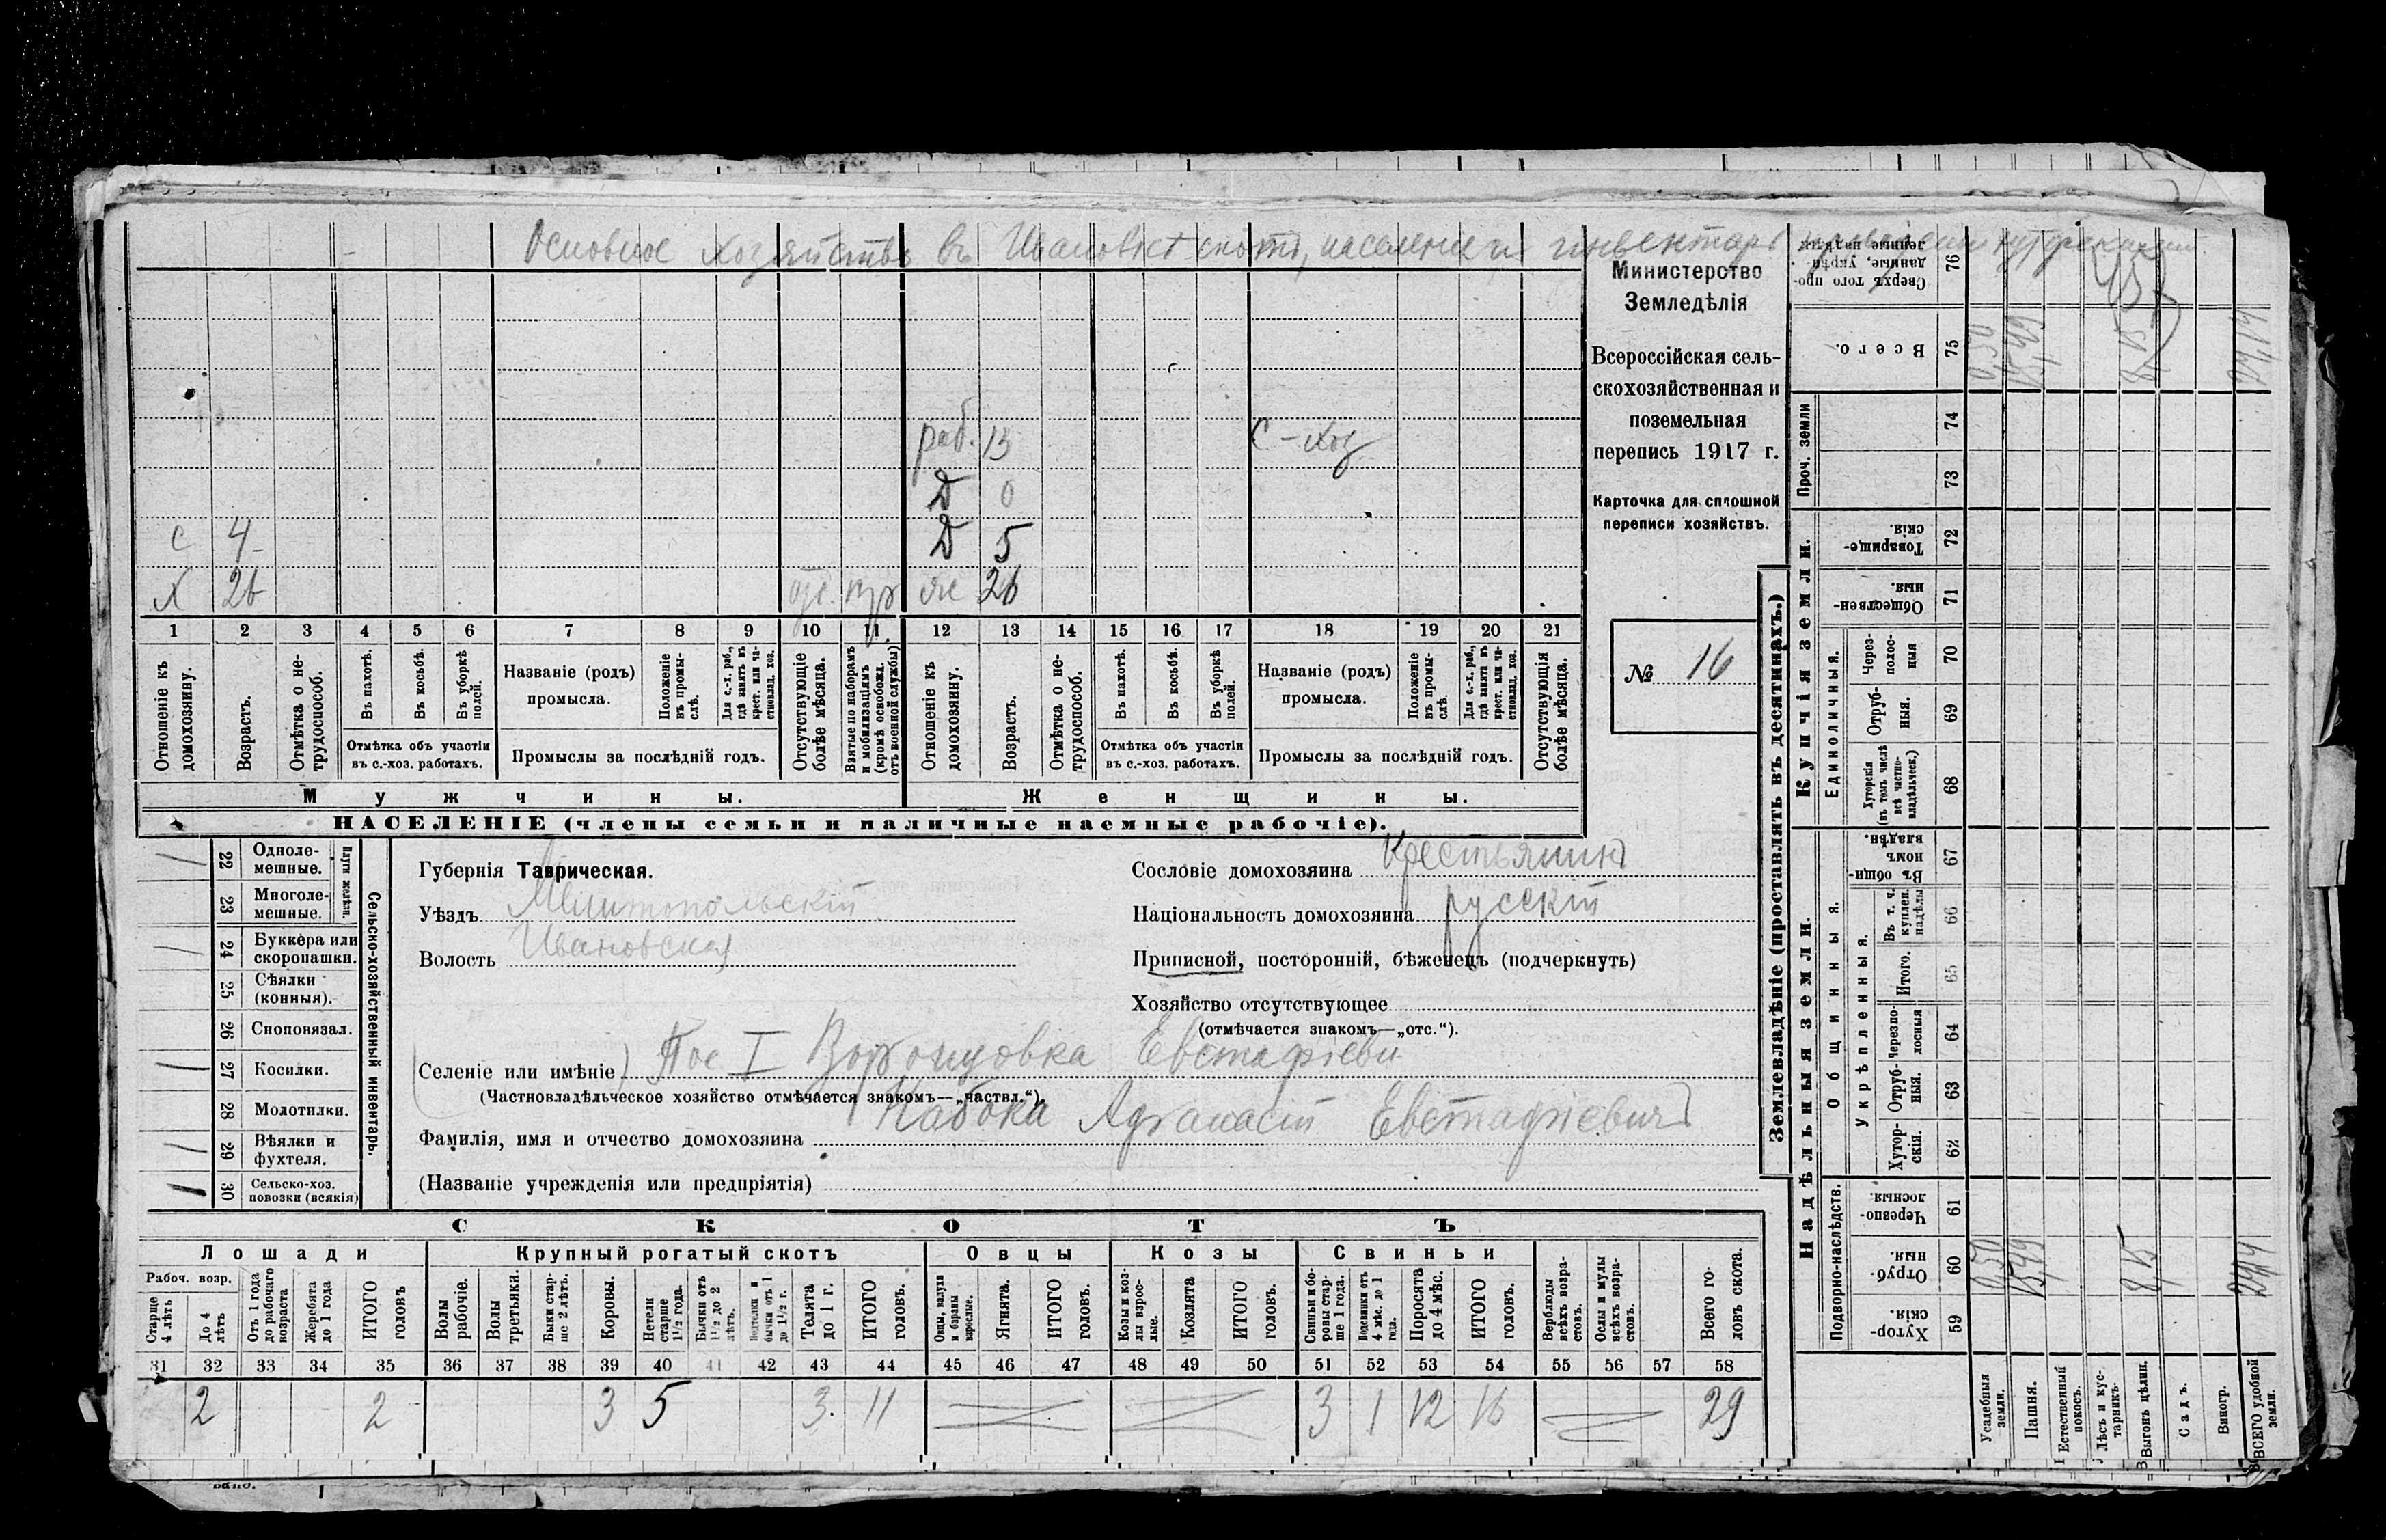 Основное хозяйство въ Ивановкѣ скотъ, населенie и инвентарь
раб. 13 С-хоз
Д 0
С 4 Д 5
Х 26 же 26
1 2 3 4 5 6 7 8 9 10 11 12 13 14 15 16 17 18 19 20 21
Отношеніе къ домохозяину.
Возрастъ.
Отмѣтка о нетрудоспособ.
Въ пахотѣ.
Въ косьбѣ.
Въ уборкѣ полей.
Отмѣтка объ участіи въ с.-хоз. работахъ.
Названіе (родъ) промысла.
Положеніе въ промыслѣ.
Для с.-х. раб., гдѣ занятъ въ крест. или частновлад. хоз.
Промыслы за послѣдній годъ.
Отсутствующіе болѣе мѣсяца.
Взятые по наборамъ и мобилизаціямъ (кромѣ освобожд. отъ военной службы)
Отношеніе къ домохозяину.
Возрастъ.
Отмѣтка о нетрудоспособ.
Въ пахотѣ.
Въ косьбѣ.
Въ уборкѣ полей.
Отмѣтка объ участіи въ с.-хоз. работахъ.
Названіе (родъ) промысла.
Положеніе въ промыслѣ.
Для с.-х. раб., гдѣ занята въ крест. или частновлад. хоз.
Промыслы за послѣдній годъ.
Отсутствующія болѣе мѣсяца.
Мужчины. Женщины.
НАСЕЛЕНІЕ (члены семьи и наличные наемные рабочіе).
Министерство
Земледѣлія
Всероссійская сель-
скохозяйственная и
поземельная
перепись 1917 г.
Карточка для сплошной
переписи хозяйствъ.
№ 16
Сельско-хозяйственный инвентарь.
Плуги желѣзн.
22 Однолемешные.
23 Многолемешные.
24 Буккера или скоропашки.
25 Сѣялки (конныя).
26 Сноповязал.
27 Косилки.
28 Молотилки.
29 Вѣялки и фухтеля.
30 Сельско-хоз. повозки (всякія)
Губернія Таврическая.
Уѣздъ Мелитопольскій
Волость Ивановская
Сословіе домохозяина Крестьянинъ
Національность домохозяина русскій
Приписной, посторонній, бѣженецъ (подчеркнуть)
Хозяйство отсутствующее
(отмѣчается знакомъ—„отс.“).
Селеніе или имѣніе) Пос I Воронцовка Евстафіеви
(Частновладѣльческое хозяйство отмѣчается знакомъ—„частвл.“).
Фамилія, имя и отчество домохозяина Набока Афанасій Евстафіевичъ
(Названіе учрежденія или предпріятія)
СКОТЪ
Лошади Крупный рогатый скотъ Овцы Козы Свиньи
Рабоч. возр.
Старше 4 лѣтъ
До 4 лѣтъ
Отъ 1 года до рабочаго возраста
Жеребята до 1 года
ИТОГО головъ
Волы рабочіе.
Волы третьяки.
Быки старше 2 лѣтъ.
Коровы.
Нетели старше 1½ года.
Бычки отъ 1½ до 2 лѣтъ.
Подтелки и бычки отъ 1 до 1½ г.
Телята до 1 г.
ИТОГО головъ.
Овцы, валухи и бараны взрослые.
Ягнята.
ИТОГО головъ.
Козы и козлы взрослые.
Козлята
ИТОГО головъ.
Свиньи и боровы старше 1 года.
Подсвинки отъ 4 мѣс. до 1 года.
Поросята до 4 мѣс.
ИТОГО головъ.
Верблюды всѣхъ возрастовъ.
Ослы и мулы всѣхъ возрастовъ.
Всего головъ скота.
31 32 33 34 35 36 37 38 39 40 41 42 43 44 45 46 47 48 49 50 51 52 53 54 55 56 57 58
2 2 3 5 3 11 3 1 12 16 29
Землевладѣніе (проставлять въ десятинахъ.)
Надѣльныя земли.
Подворно-наслѣдств.
Хуторскія. 59
Отрубныя. 60
Черезполосныя. 61
Общинныя.
Укрѣпленныя.
Хуторскія. 62
Отрубныя. 63
Черезполосныя 64
Итого. 65
Въ т. ч. куплен. надѣлы 66
Въ общинномъ владѣн. 67
Купчія земли.
Единоличныя.
Хуторскія (въ томъ числѣ всѣ частновладѣльческ.) 68
Отрубныя. 69
Черезполосныя 70
Общественныя. 71
Товарищескія. 72
Проч. земли 73 74
Всего. 75
Сверхъ того проданные, укрѣпленные надѣлы 76
Усадебныя земли. 0,50 0,50
Пашня. 15,49 15,49
Естественный покосъ.
Лѣсъ и кустарникъ.
Выгонъ цѣлин. 8,15 8,15
Садъ.
Виногр.
ВСЕГО удобной земли. 24,14 24,14